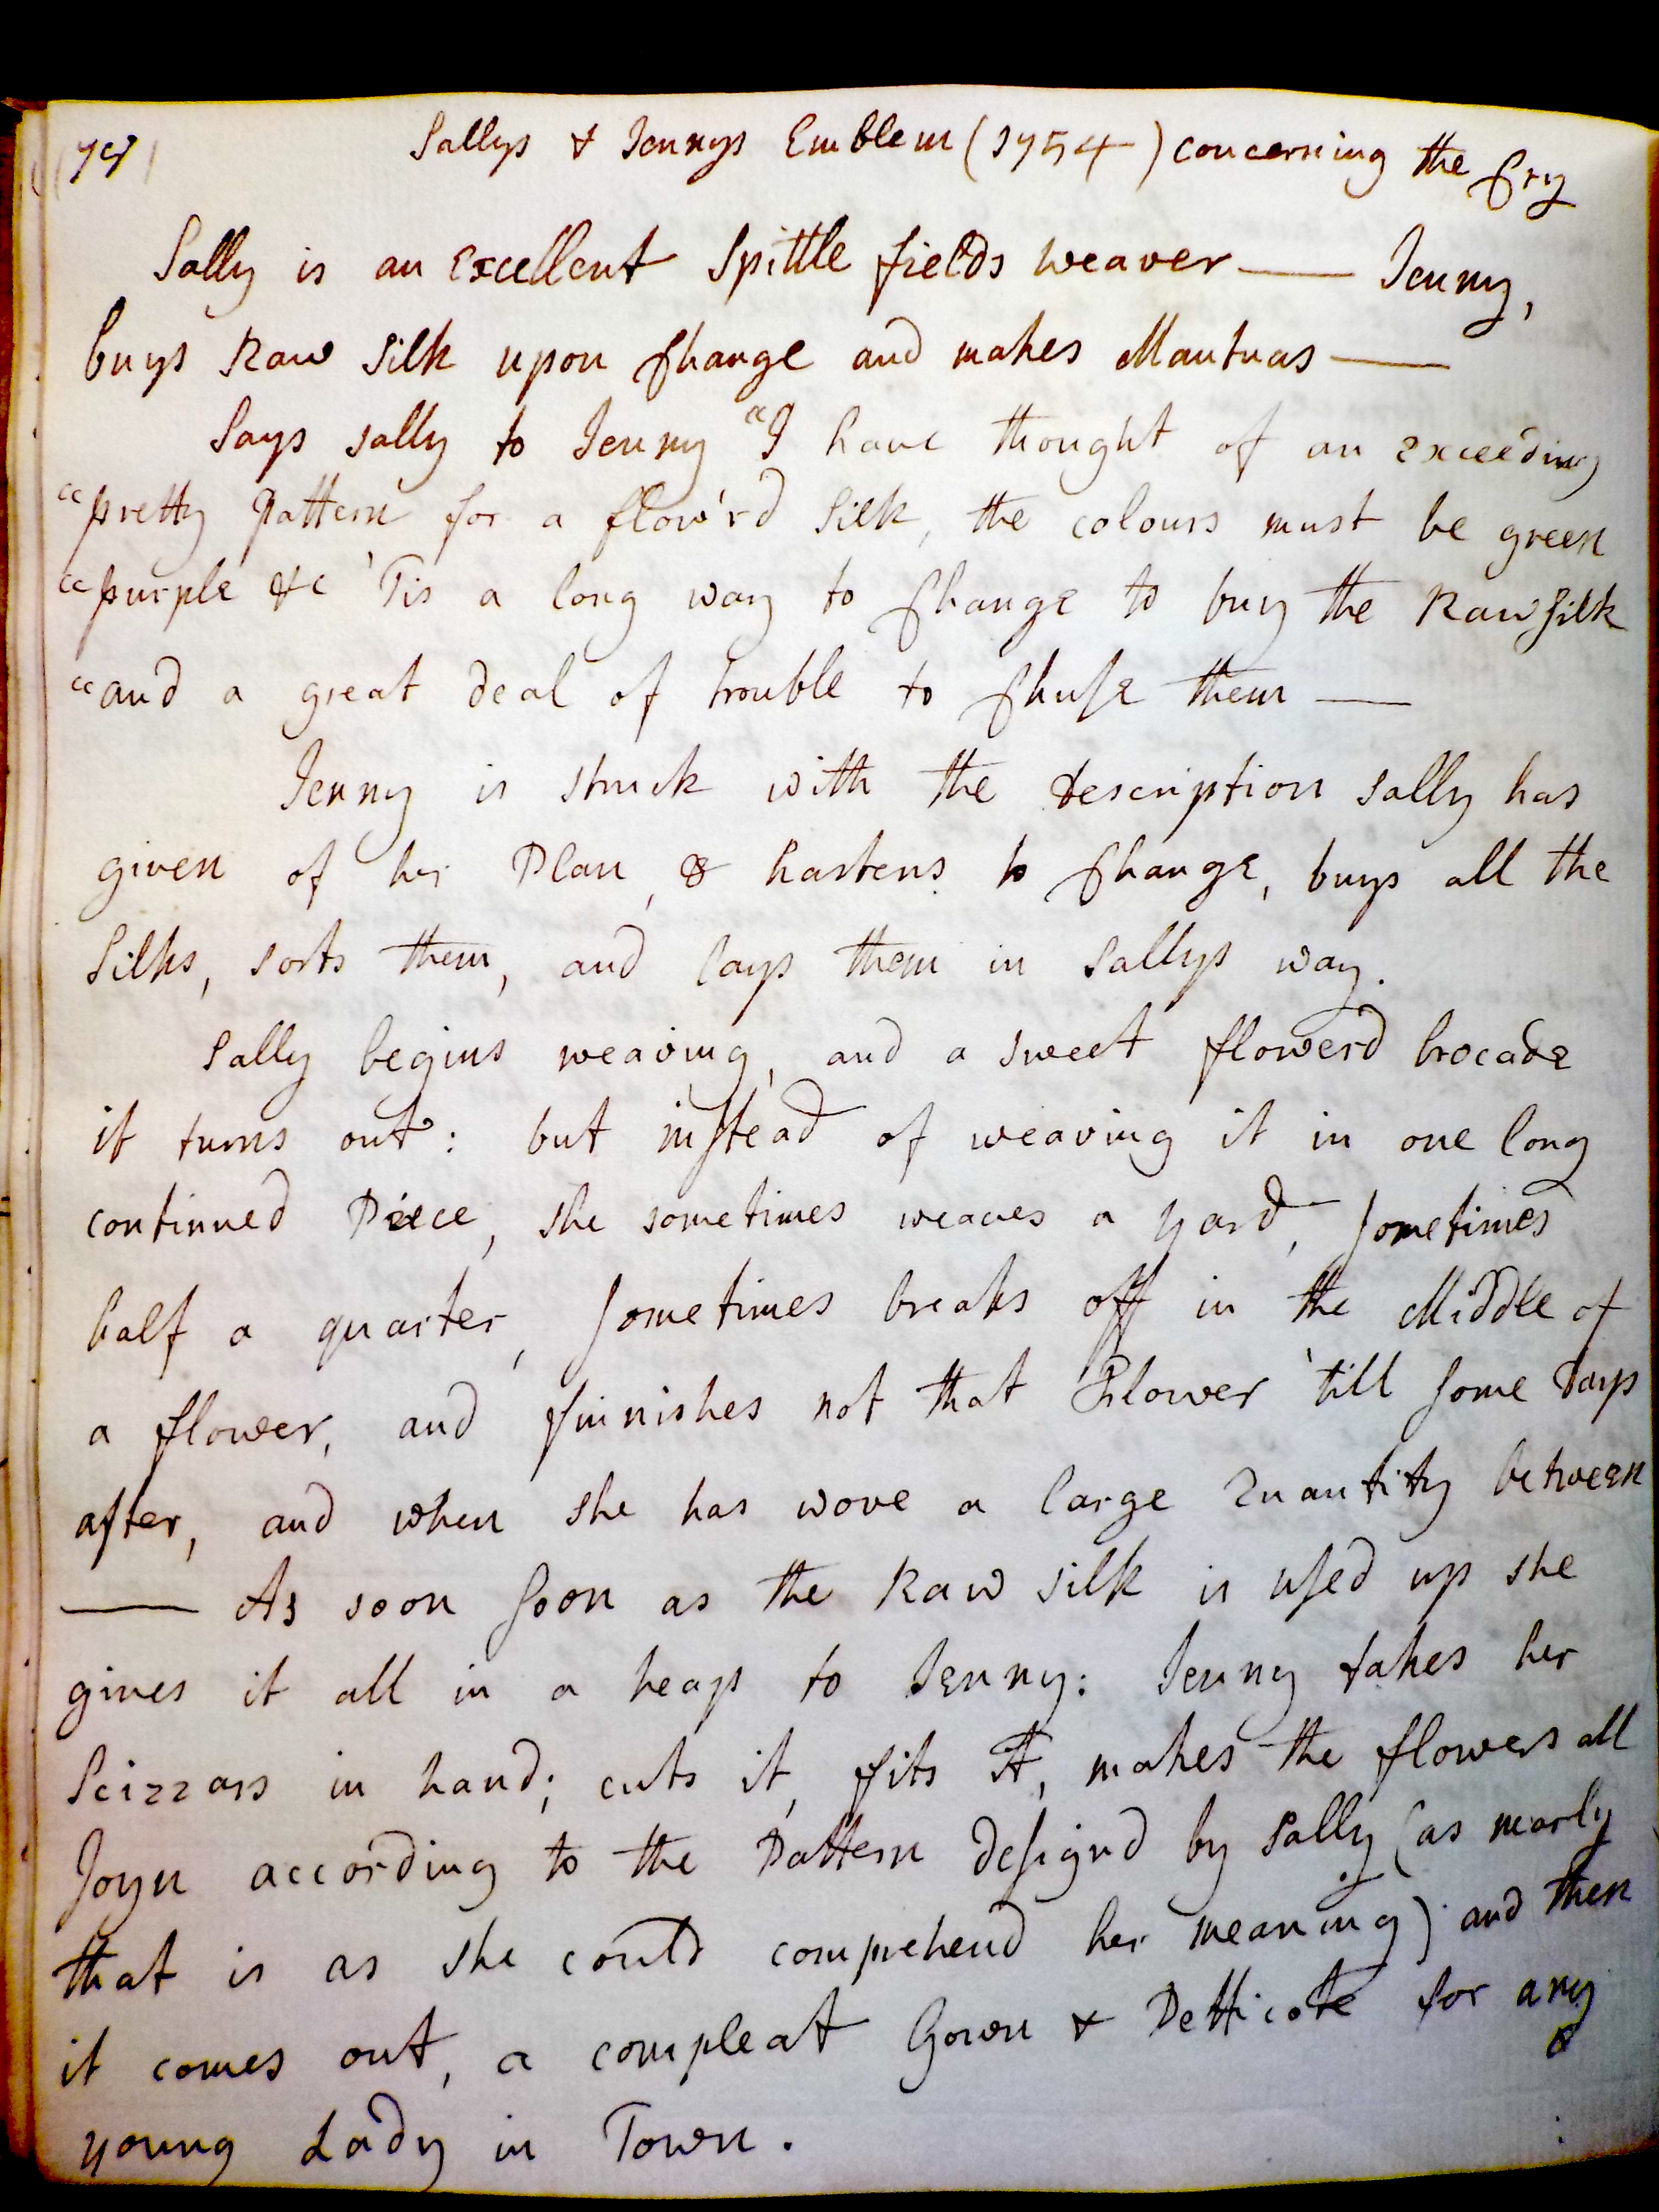 Sallys & Jennys Emblem (1754) concerning the Cry
Sally is an Excellent Spittle fields weaver — Jenny,
buys Raw Silk upon Change and makes Mantuas —
Says sally to Jenny "I have thought of an exceeding
"pretty Pattern for a flow'rd Silk, the colours must be green
"purple &c 'Tis a long way to Change to buy the Raw Silk
"and a great deal of trouble to Chuse them —
Jenny is struck with the description sally has
given of her Plan, & hastens to Change, buys all the
Silks, sorts them, and lays them in sallys way.
Sally begins weaving, and a sweet flowerd brocade
it turns out: but instead of weaving it in one long
continued Piece, she sometimes weaves a yard, sometimes
half a quarter, sometimes breaks off in the Middle of
a flower, and finnishes not that Flower 'till some days
after, and when she has wove a large Quantity between
— As soon soon as the Raw silk is used up she
gives it all in a heap to Jenny: Jenny takes her
Scizzars in hand; cuts it, fits it, makes the flowers all
Joyn according to the Pattern designd by Sally (as nearly
that is as she could comprehend her meaning) and then
it comes out, a compleat Gown & Petticote for any
young Lady in Town.